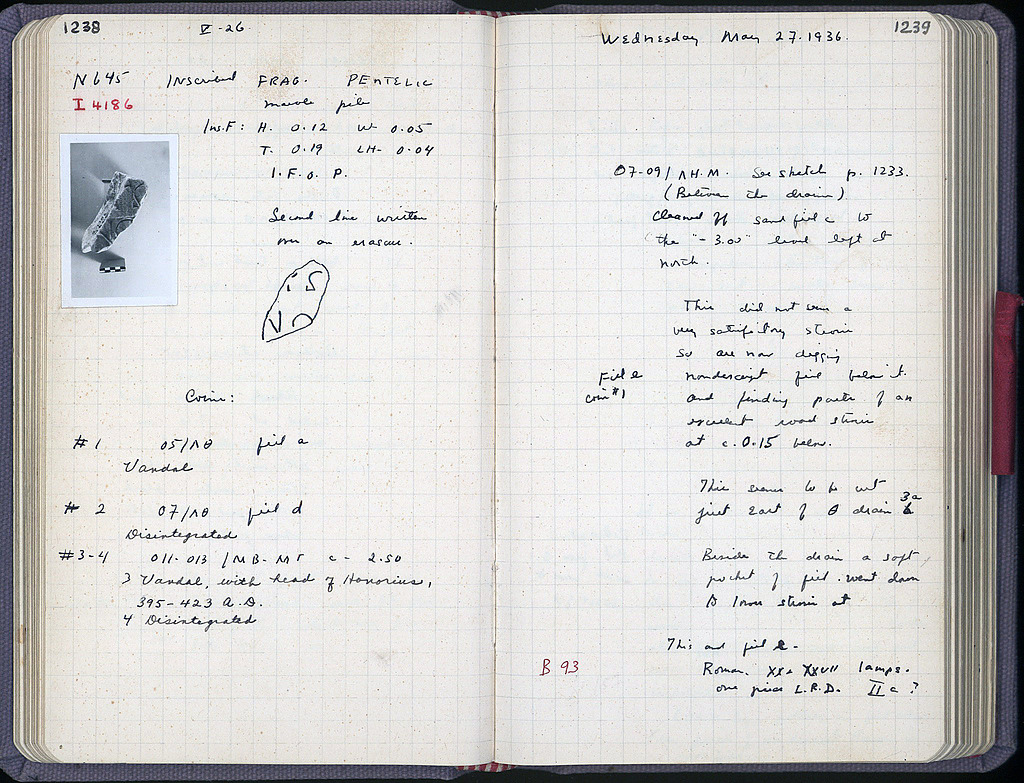 1238
V-26
N645 Inscribed FRAG. PENTELIC
I 4186
marble pile
Ins.F: H. 0.12 W- 0.05
T. 0.19 LH- 0.04
I.F.O.P.
Second line written
over an erasure.
Coins:
#1 05/ΛΘ fill a
Vandal
#2 07/ΛΘ fill d
Disintegrated
#3-4 011-013 /MB-MΓ c - 2.50
3 Vandal, with head of Honorius,
395-423 A.D.
4 Disintegrated
1239
Wednesday May 27.1936.
07-09/ΛH.M. See sketch p. 1233.
(Between the drains)
Cleaned off sand fill c to
the "-3.00" level left at
north.
This did not seem a
very satisfactory strosis
so are now digging
Fill e nondescript fill below it.
coin #1 and finding parts of an
excellent road strosis
at c. 0.15 below.
This seems to be cut
just East of Θ drain 3a
Beside the drain a soft
pocket of fill went down
to lower strosis at
This and fill e-
B 93
Roman. XX + XXVII lamps.
one piece L.R.D. II c ?